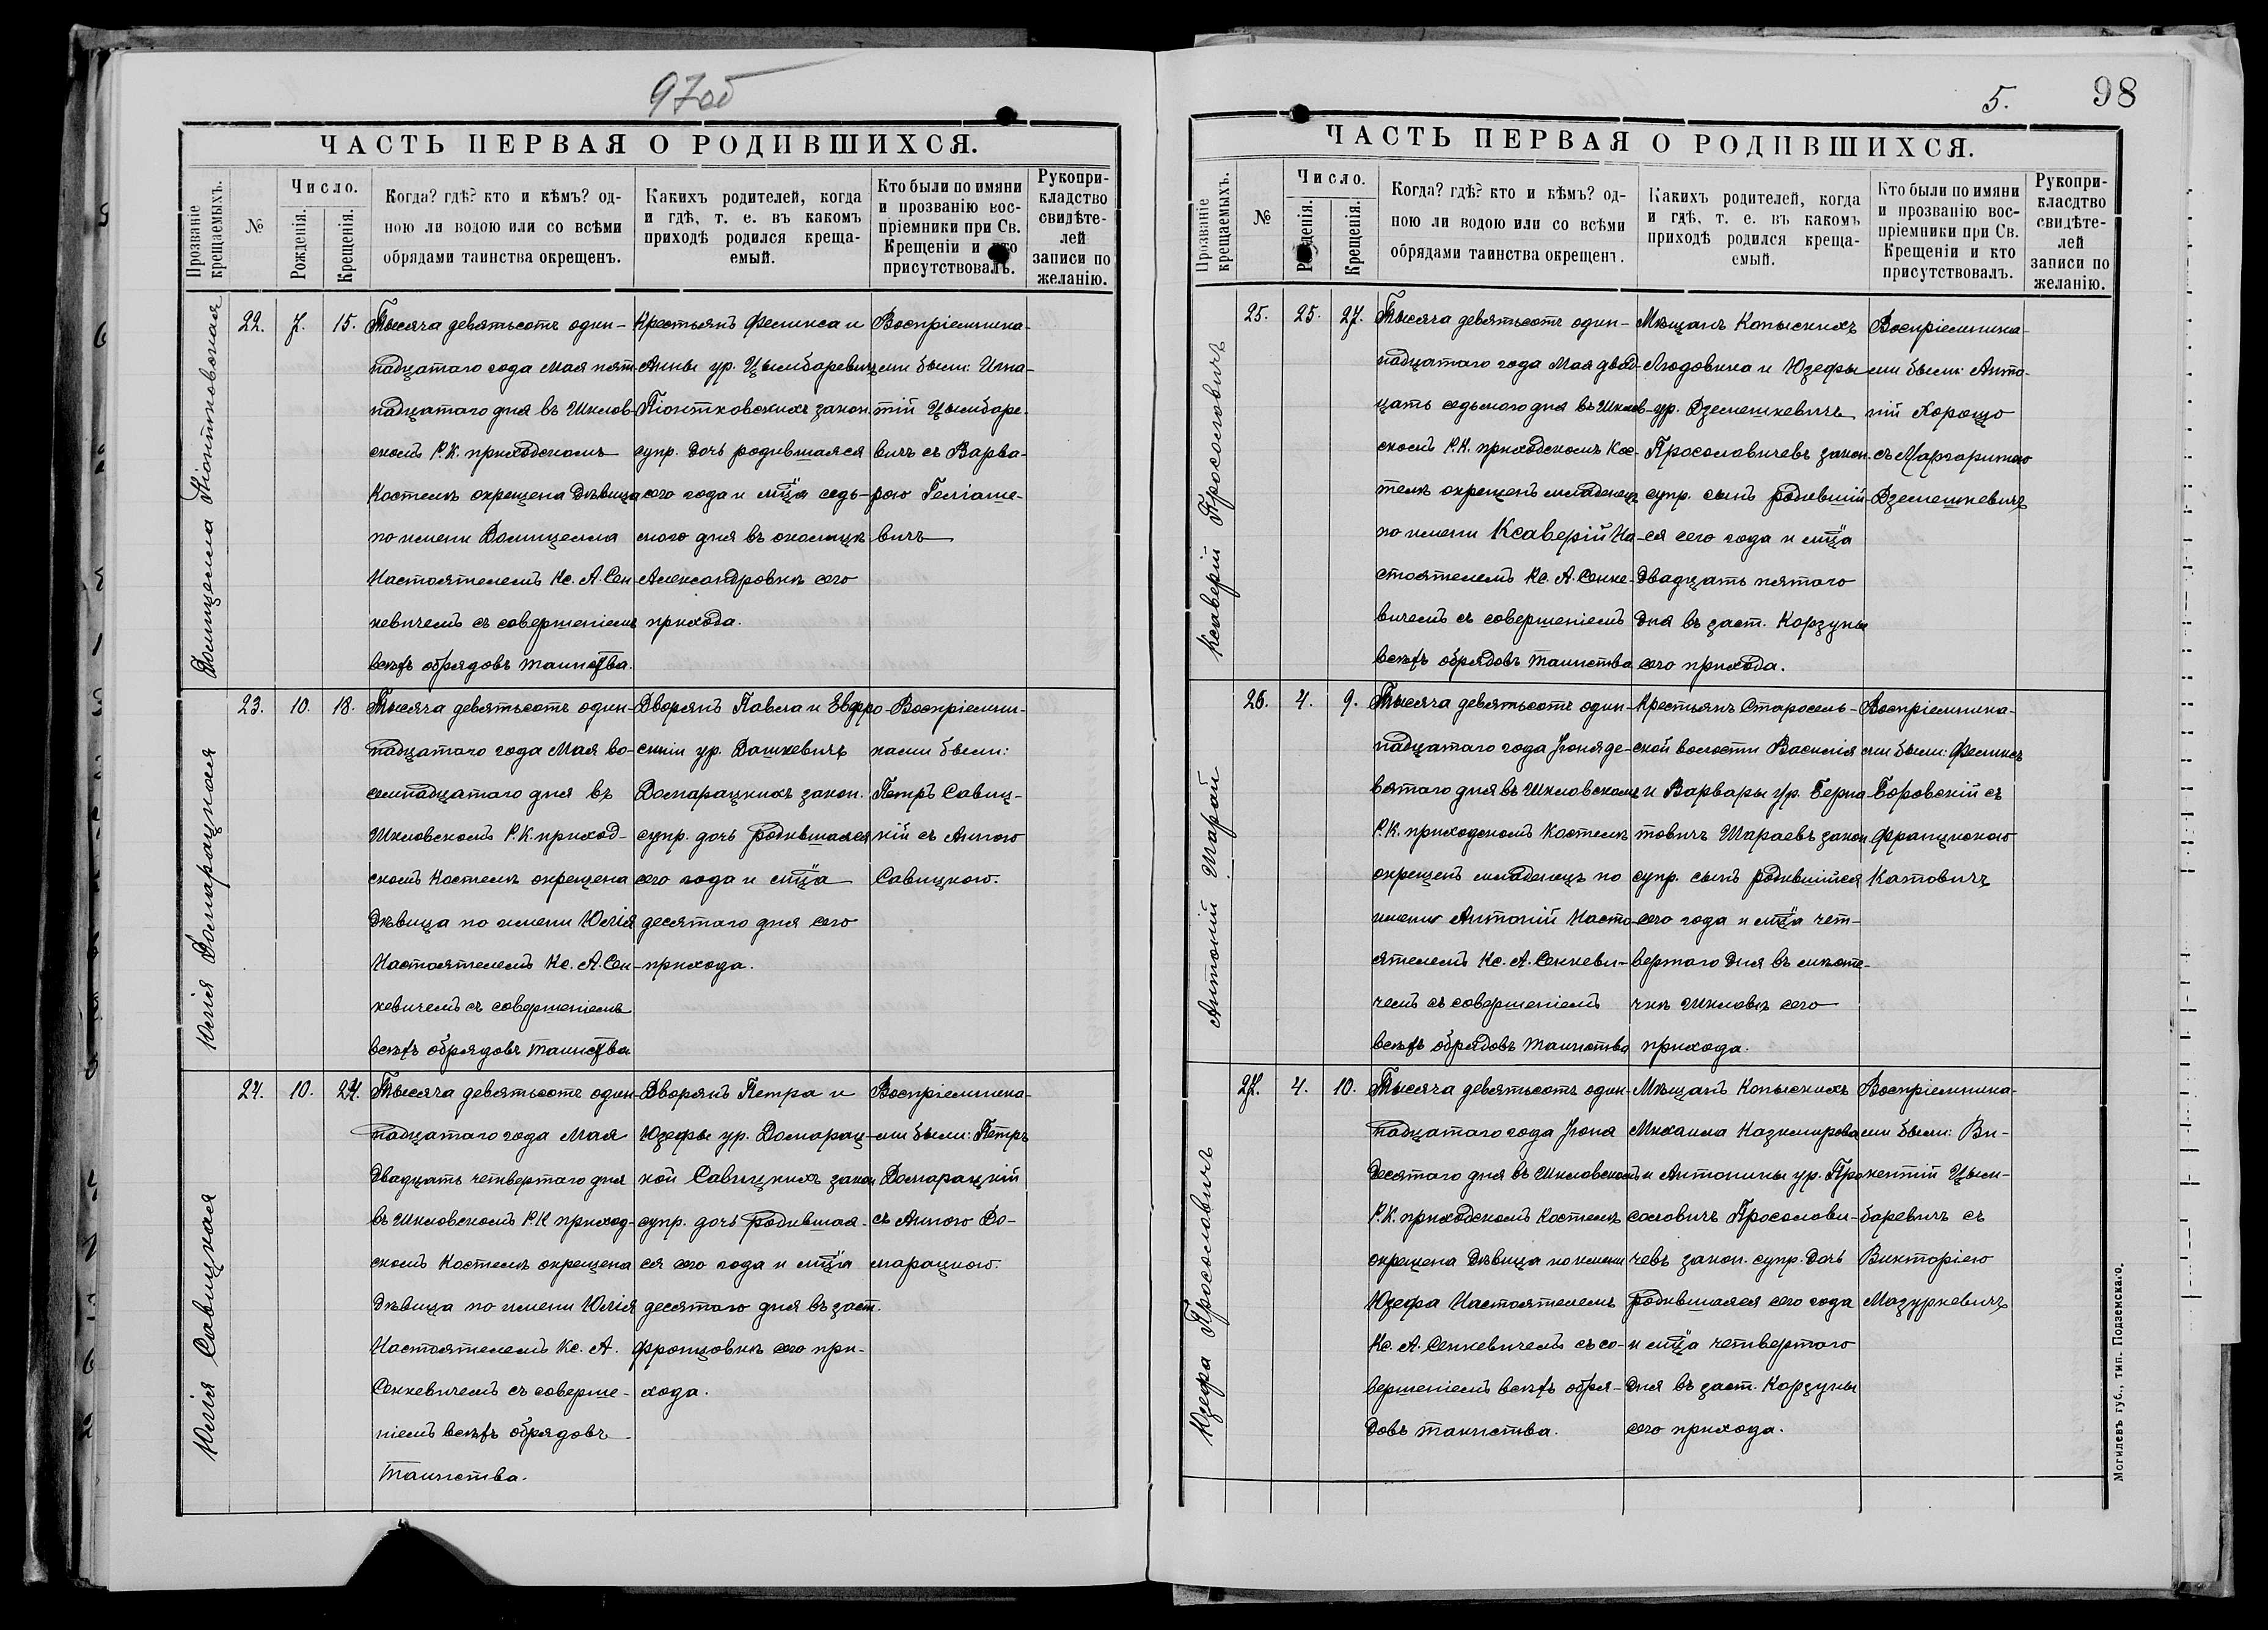 97об
ЧАСТЬ ПЕРВАЯ О РОДИВШИХСЯ.
Прозваніе крещаемыхъ.
№
Число.
Рожденія.
Крещенія.
Когда? гдѣ? кто и кѣмъ? од-
ною ли водою или со всѣми
обрядами таинства окрещенъ.
Какихъ родителей, когда
и гдѣ, т. е. въ какомъ
приходѣ родился креща-
емый.
Кто были по имяни
и прозванію вос-
пріемники при Св.
Крещеніи и кто
присутствовалъ.
Рукопри-
кладство
свидѣте-
лей
записи по
желанію.
Домицелла Піонтковская
22.
7.
15.
Тысяча девятьсотъ один-
надцатаго года Мая пят-
надцатаго дня въ Шклов-
скомъ Р.К. приходскомъ
Костелѣ окрещена дѣвица
по имени Домицелла
Настоятелемъ Кс. А. Сен-
кевичемъ съ совершеніемъ
всѣхъ обрядовъ таинства.
Крестьянъ Феликса и
Анны ур. Цымбаревичъ
Піонтковскихъ закон.
супр. дочь родившаяся
сего года и мѣца седь-
мого дня въ околицѣ
Александровкѣ сего
прихода.
Воспріемника-
ми были: Игна-
тій Цымбаре-
вичъ съ Варва-
рою Гелгаше-
вичъ
Юлія Домарацкая
23.
10.
18.
Тысяча девятьсотъ один-
надцатаго года Мая во-
семнадцатаго дня въ
Шкловскомъ Р.К. приход-
скомъ Костелѣ окрещена
дѣвица по имени Юлія
Настоятелемъ Кс. А. Сен-
кевичемъ съ совершеніемъ
всѣхъ обрядовъ таинства
Дворянъ Павла и Евфро-
синіи ур. Дашкевичъ
Домарацкихъ закон.
супр. дочь родившаяся
сего года и мѣца
десятаго дня сего
прихода.
Воспріемни-
ками были:
Петръ Савиц-
кій съ Анною
Савицкою.
Юлія Савицкая
24.
10.
24.
Тысяча девятьсотъ один-
надцатаго года Мая
двадцать четвертаго дня
въ Шкловскомъ Р.К. приход-
скомъ Костелѣ окрещена
дѣвица по имени Юлія
Настоятелемъ Кс. А.
Сенкевичемъ съ соверше-
ніемъ всѣхъ обрядовъ
таинства.
Дворянъ Петра и
Юзефы ур. Домарац-
кой Савицкихъ закон
супр. дочь родившая-
ся сего года и мѣца
десятаго дня въ заст.
Францовкѣ сего при-
хода.
Воспріемника-
ми были: Петръ
Домарацкій
съ Анною До-
марацкою.
5.
98
ЧАСТЬ ПЕРВАЯ О РОДИВШИХСЯ.
Прозваніе крещаемыхъ.
№
Число.
Рожденія.
Крещенія.
Когда? гдѣ? кто и кѣмъ? од-
ною ли водою или со всѣми
обрядами таинства окрещенъ.
Какихъ родителей, когда
и гдѣ, т. е. въ какомъ
приходѣ родился креща-
емый.
Кто были по имяни
и прозванію вос-
пріемники при Св.
Крещеніи и кто
присутствовалъ.
Рукопри-
класдтво
свидѣте-
лей
записи по
желанію.
Ксаверій Просоловичъ
25.
25.
27.
Тысяча девятьсотъ один-
надцатаго года Мая двад-
цать седьмого дня въ Шклов-
скомъ Р.К. приходскомъ Кос-
телѣ окрещенъ младенецъ
по имени Ксаверій На-
стоятелемъ Кс. А. Сенке-
вичемъ съ совершеніемъ
всѣхъ обрядовъ таинства
Мѣщанъ Копыскихъ
Людовика и Юзефы
ур. Дземешкевичъ
Просоловичевъ закон.
супр. сынъ родивший-
ся сего года и мѣца
двадцать пятаго
дня въ заст. Корзуны
сего прихода.
Воспріемника-
ми были: Анто-
ній Хорощо
съ Маргаритою
Дземешкевичъ
Антоній Шарай
26.
4.
9.
Тысяча девятьсотъ один-
надцатаго года Іюня де-
вятаго дня въ Шкловскомъ
Р.К. приходскомъ Костелѣ
окрещенъ младенецъ по
имени Антоній Насто-
ятелемъ Кс. А. Сенкеви-
чемъ съ совершеніемъ
всѣхъ обрядовъ таинства
Крестьянъ Старосель-
ской волости Василія
и Варвары ур. Берна-
товичъ Шараевъ закон
супр. сынъ родившійся
сего года и мѣца чет-
вертаго дня въ мѣсте-
чкѣ Шкловѣ сего
прихода.
Воспріемника-
ми были: Феликсъ
Боровскій съ
Францискою
Катовичъ
Юзефа Просоловичъ
27.
4.
10.
Тысяча девятьсотъ один-
надцатаго года Іюня
десятаго дня въ Шкловскомъ
Р.К. приходскомъ Костелѣ
окрещена дѣвица по имени
Юзефа Настоятелемъ
Кс. А. Сенкевичемъ съ со-
вершеніемъ всѣхъ обря-
довъ таинства.
Мѣщанъ Копыскихъ
Михаила Казимирова
и Антонины ур. Про-
соловичъ Просолови-
чевъ закон. супр. дочь
родившаяся сего года
и мѣца четвертаго
дня въ заст. Корзуны
сего прихода.
Воспріемника-
ми были: Ви-
кентій Цым-
баревичъ съ
Викторіею
Мазуркевичъ
Могилевъ губ., тип. Подземскаго.